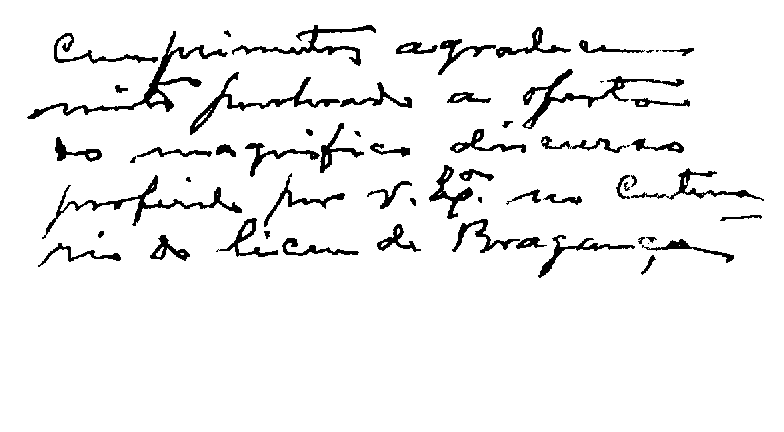 Cumprimentos agradecendo
muito penhorado a oferta
do magnifico discurso
proferido por V. Exª. no Centena-
rio do liceu de Bragança